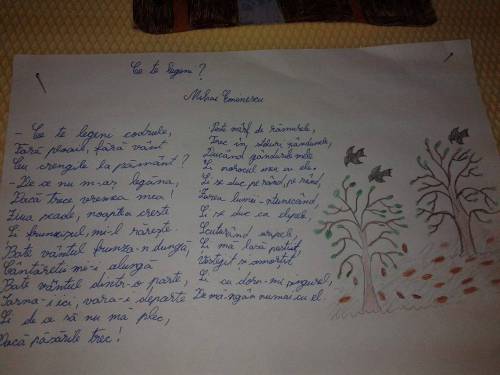 Ce te legeni?
Mihai Eminescu
- Ce te legeni codrule,
Fără ploaie, fără vânt
Cu crengile la pământ?
- De ce nu m-aș legăna,
Dacă trece vremea mea!
Ziua scade, noaptea crește
Și frunzișul mi-l rărește.
Bate vântul frunza-n dungă,
Cântăreții mi-i alungă
Bate vântul dintr-o parte,
Iarna-i ici, vara-i departe
Și de ce să nu mă plec,
Dacă păsările trec!
Peste vârf de rămurele,
Trec în stoluri rândunele,
Ducând gândurile mele
Și norocul meu cu ele.
Și se duc pe rând, pe rând,
Zarea lumii-ntunecând,
Și se duc ca clipele,
Scuturând aripele,
Și mă lasă pustiit,
Veștejit și amorțit
Și cu doru-mi singurel,
De mă-ngân numai cu el.